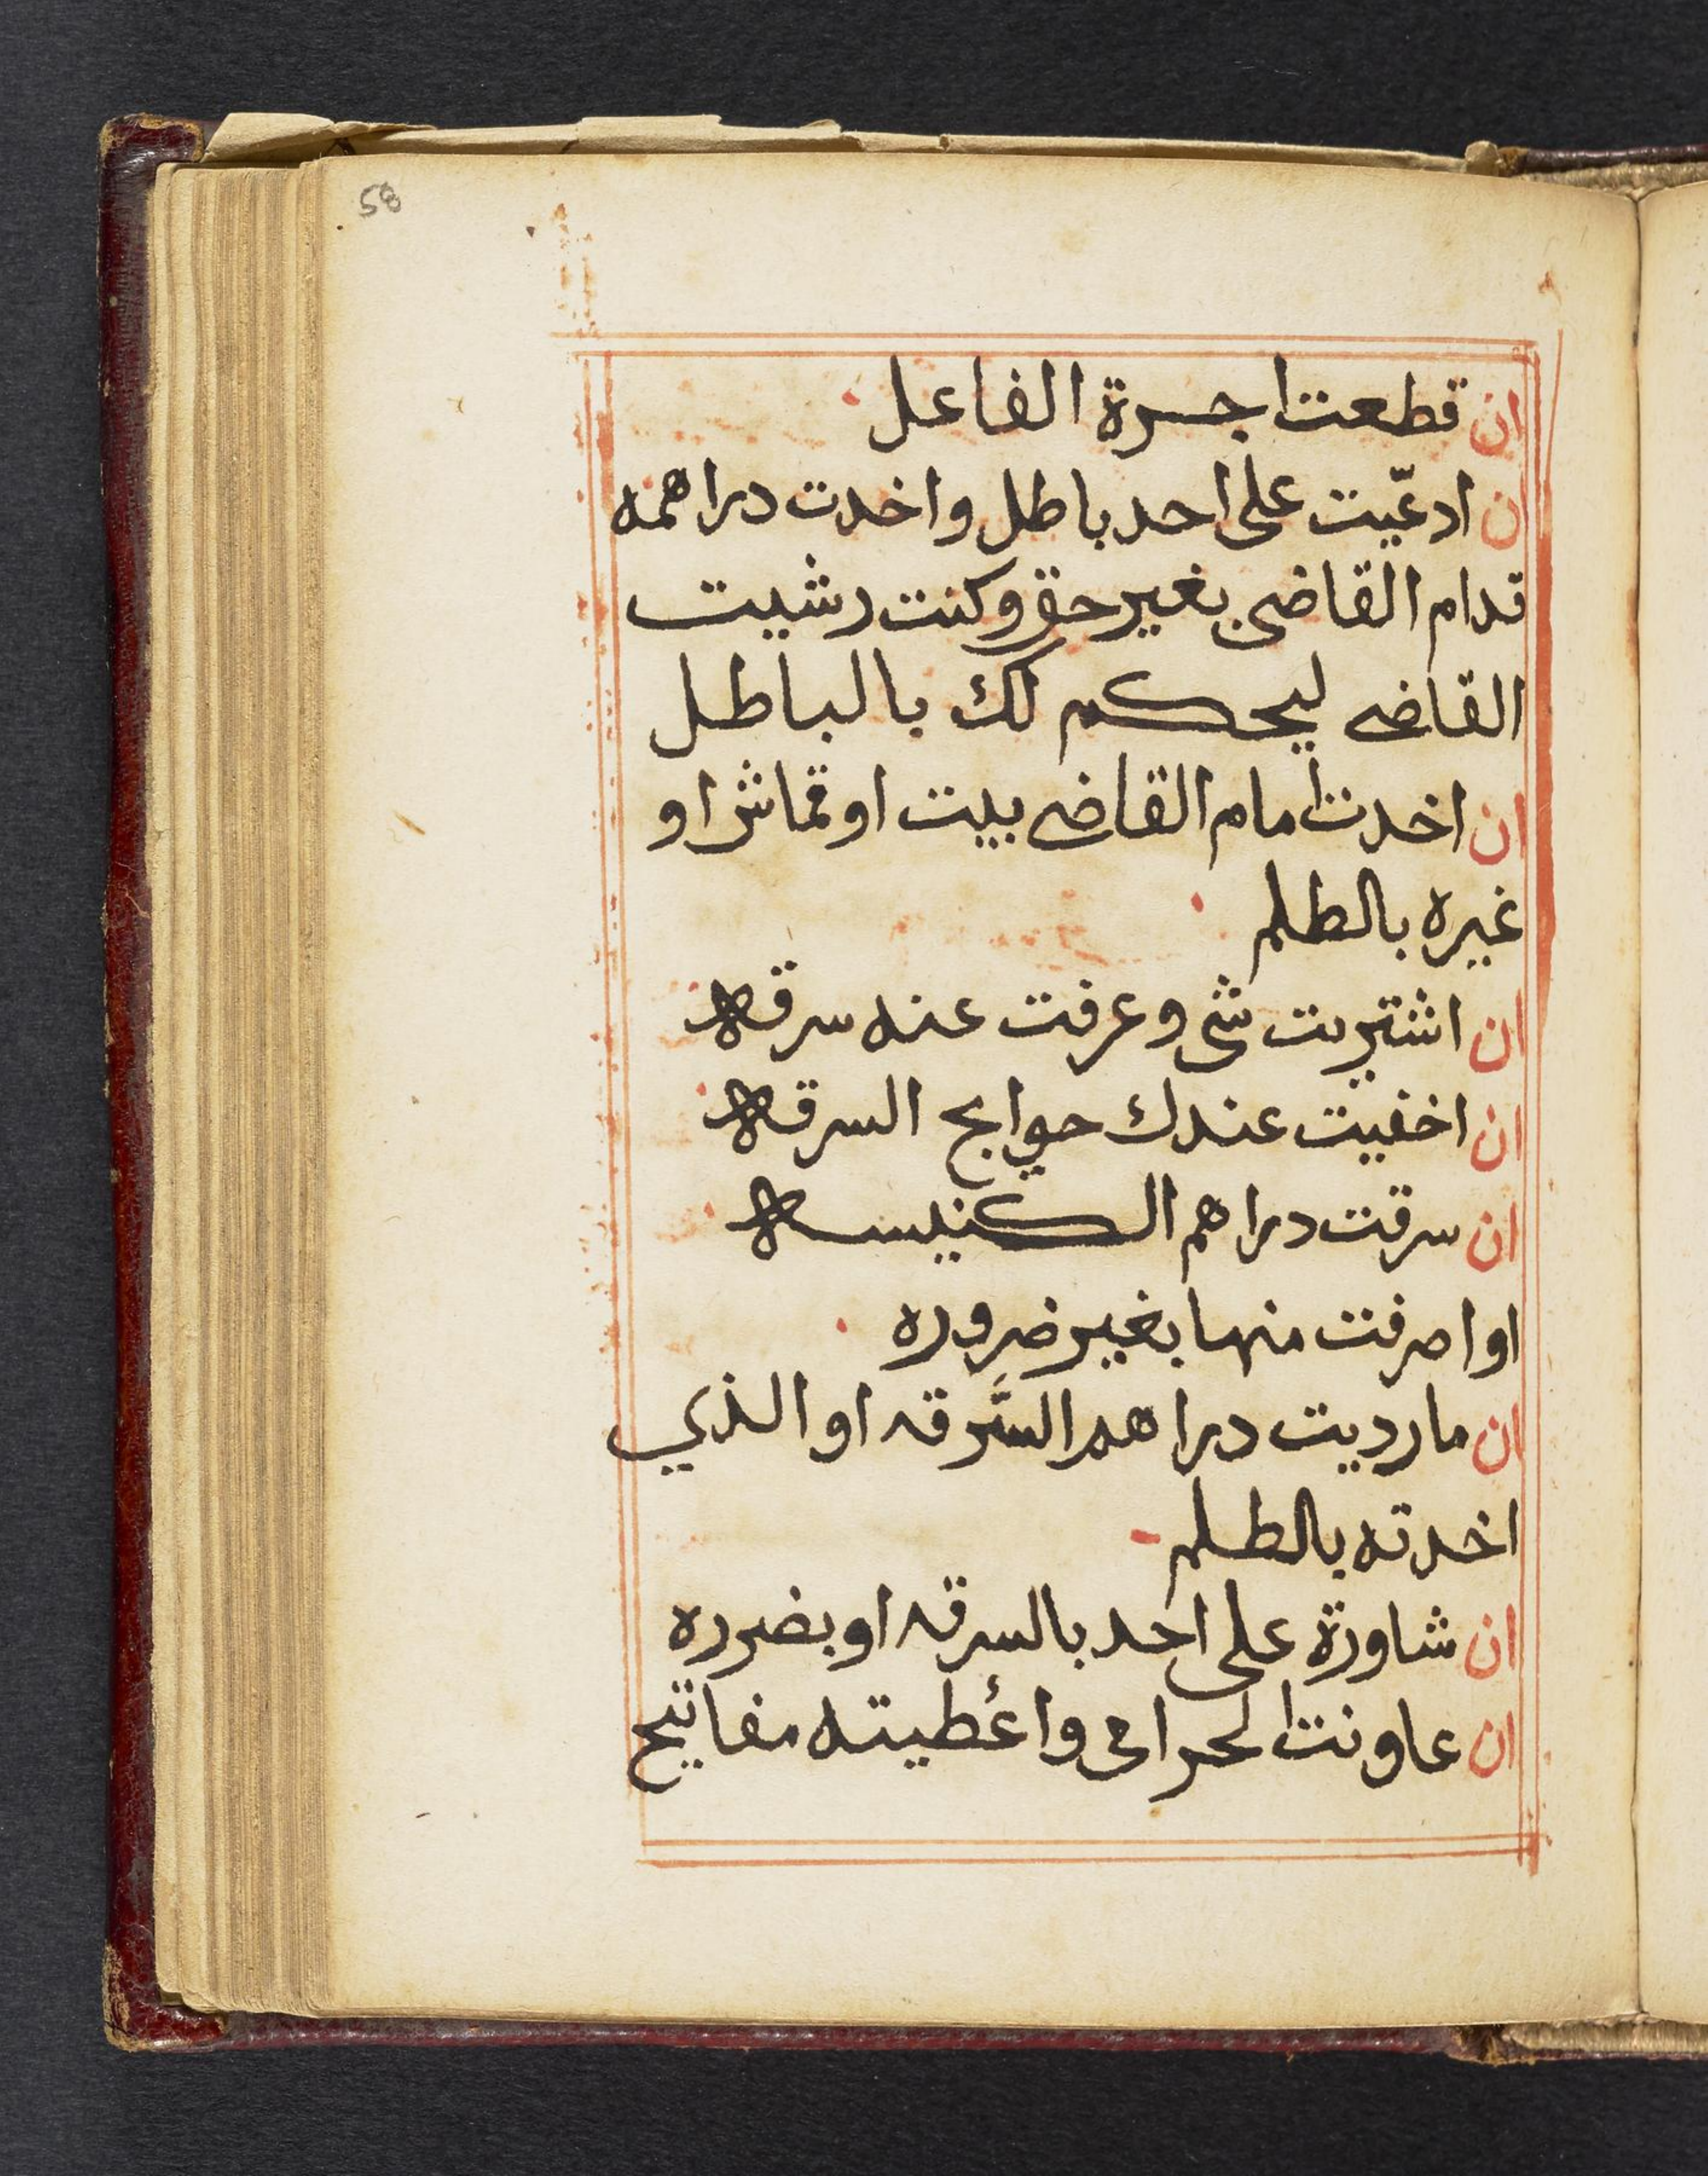 58
ان قطعت اجرة الفاعل
ان ادعّيت على احد باطل واخدت دراهمه
قدام القاضي بغير حق وكنت رشيت
القاضى ليحكم لك بالباطل
ان اخدت امام القاضى بيت او قماش او
غيره بالطلم
ان اشتريت شى وعرفت عنه سرقه
ان اخفيت عندك حوايج السرقه
ان سرقت دراهم الكنيسه
او اصرفت منها بغير ضروره
ان مارديت دراهم السَّرقه او الذي
اخدته بالطلم
ان شاورة على احد بالسرقه او بضرره
ان عاونت الحرامى واعٔطيته مفاتيح